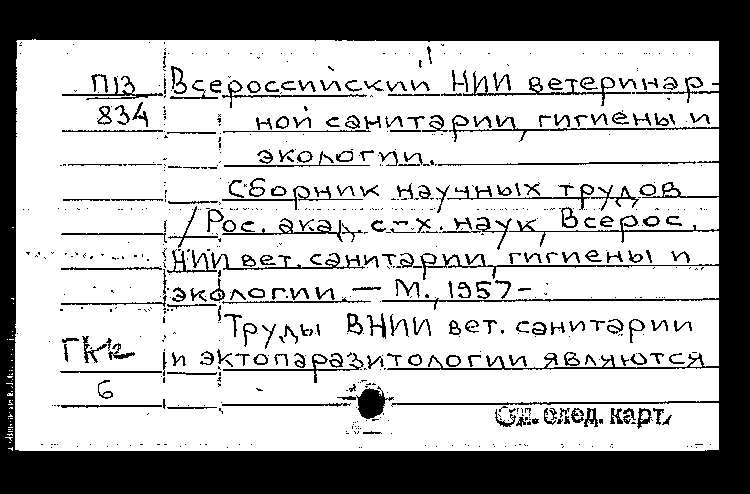 П13 Всероссийский НИИ ветеринар-
834 ной санитарии, гигиены и
экологии.
Сборник научных трудов
/ Рос. акад. с-х. наук, Всерос.
НИИ вет. санитарии, гигиены и
экологии. — М., 1957 -
Труды ВНИИ вет. санитарии
и эктопаразитологии являются
6
См. след. карт.